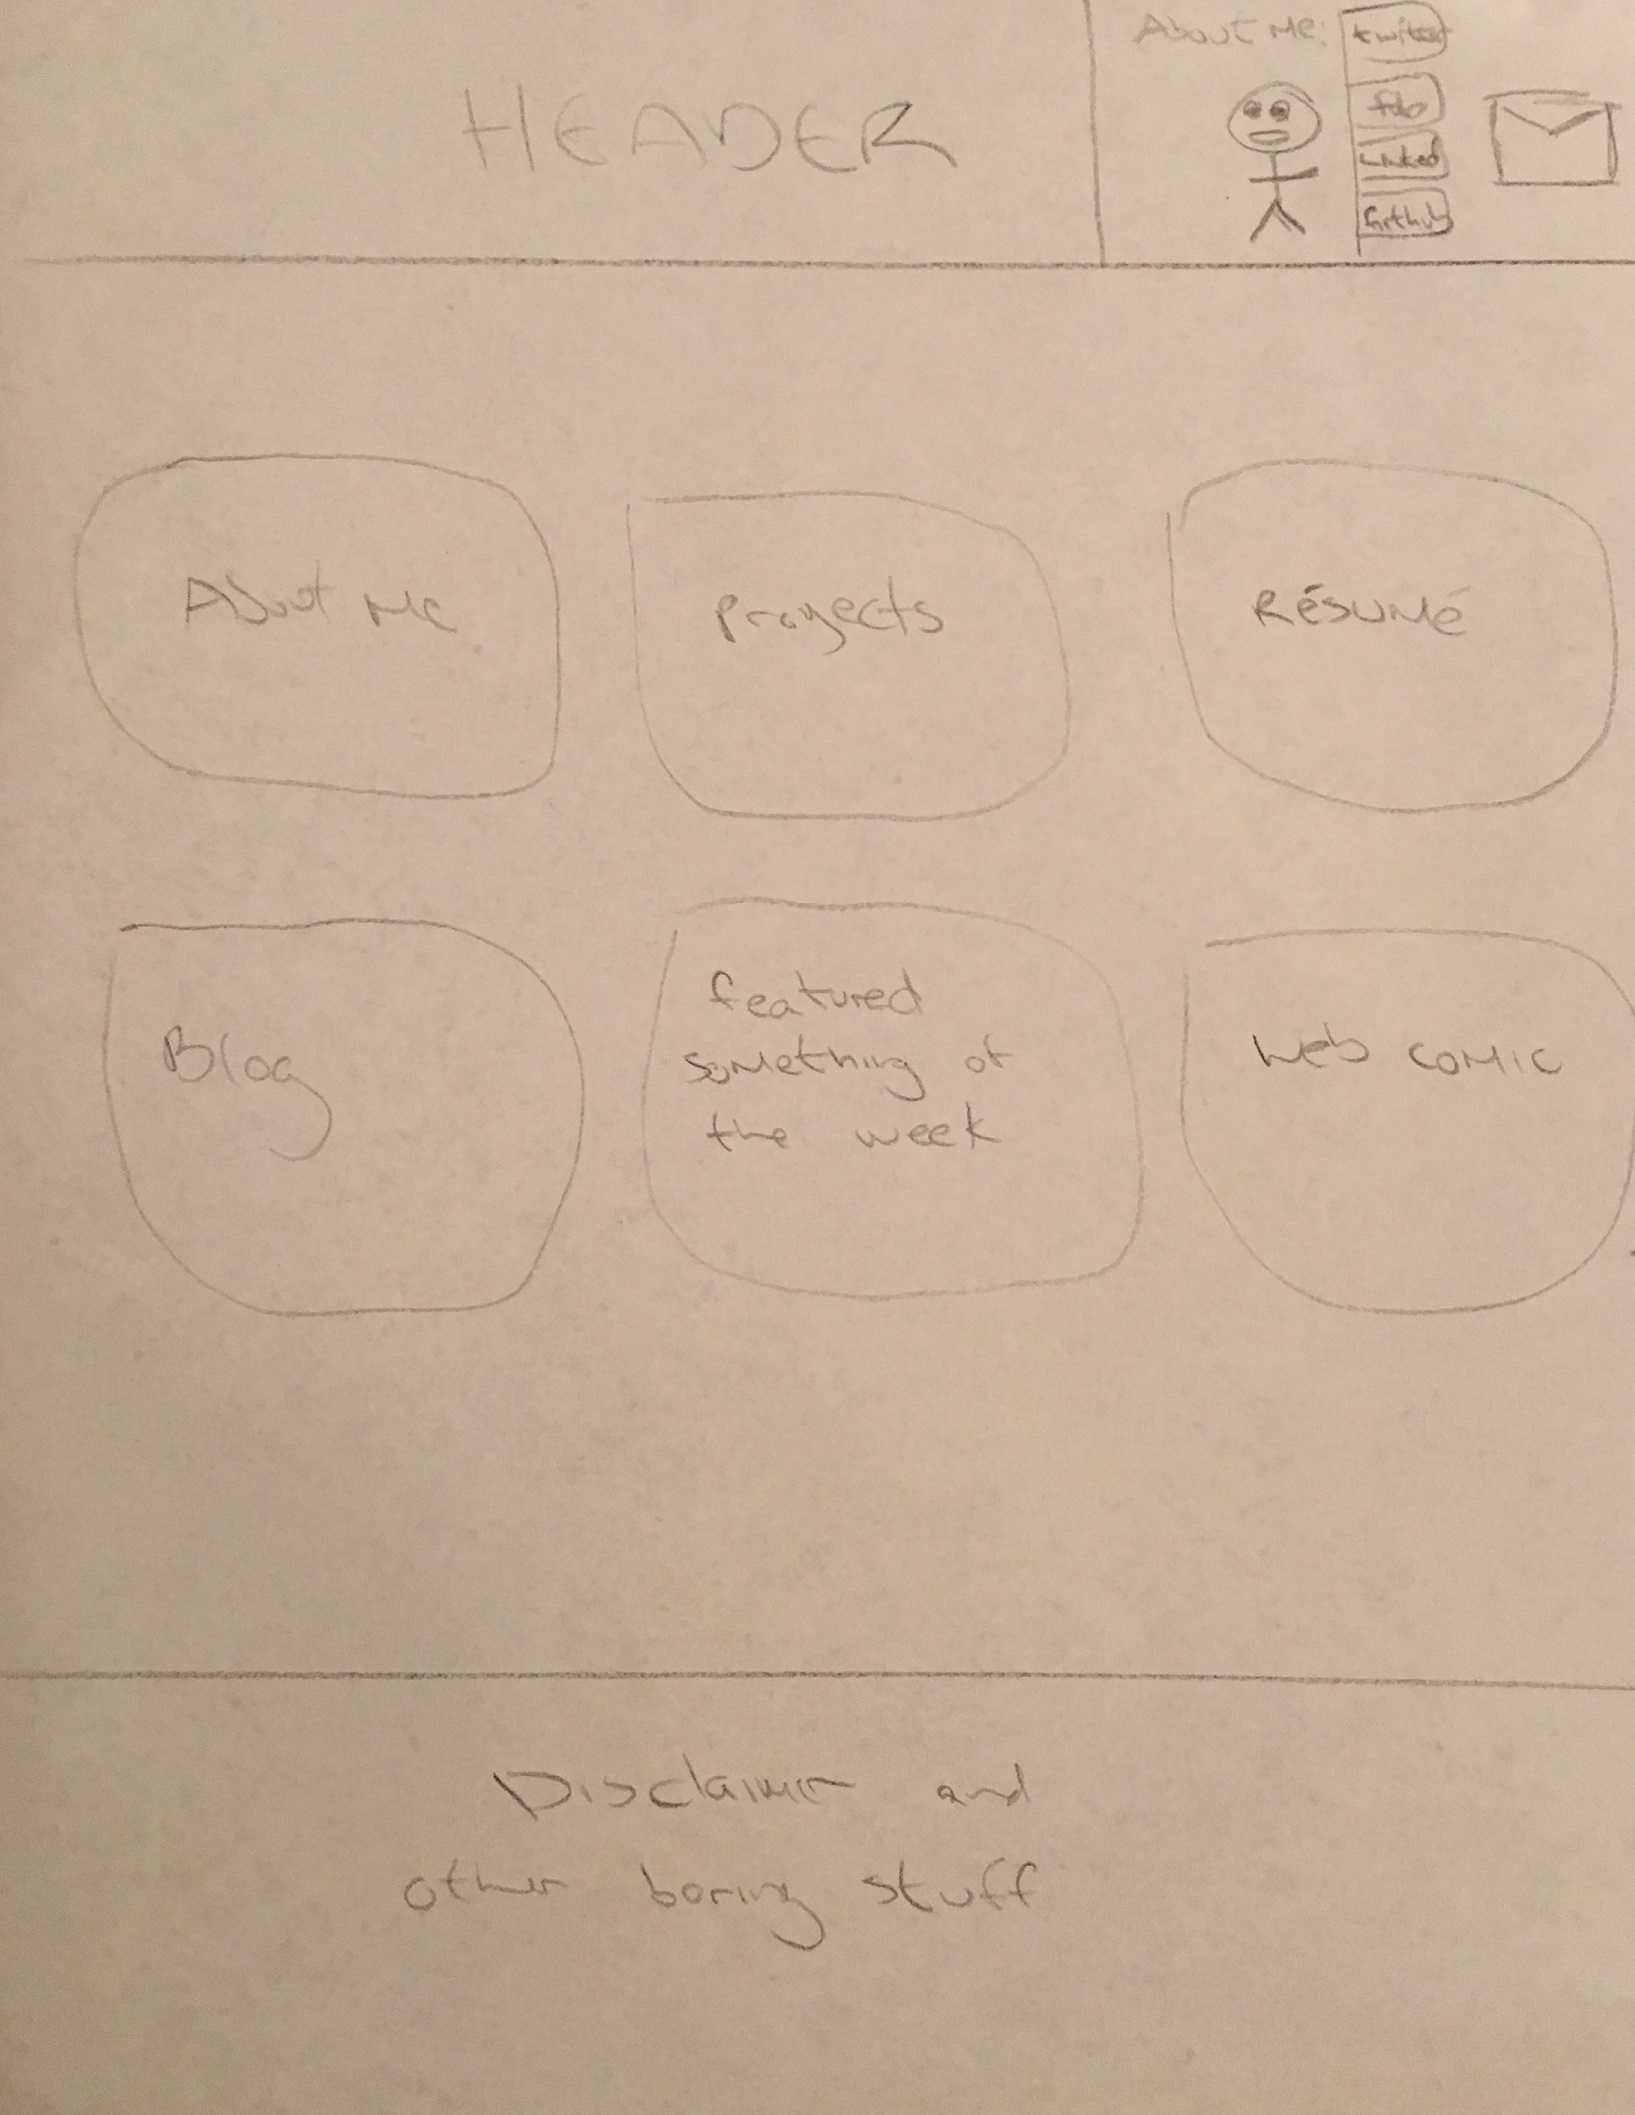 HEADER
About Me:
twitter
fb
Linked
Github
About Me
Proyects
RÉSUMÉ
Blog
featured
something of
the week
Web comic
Disclaimer and
other boring stuff